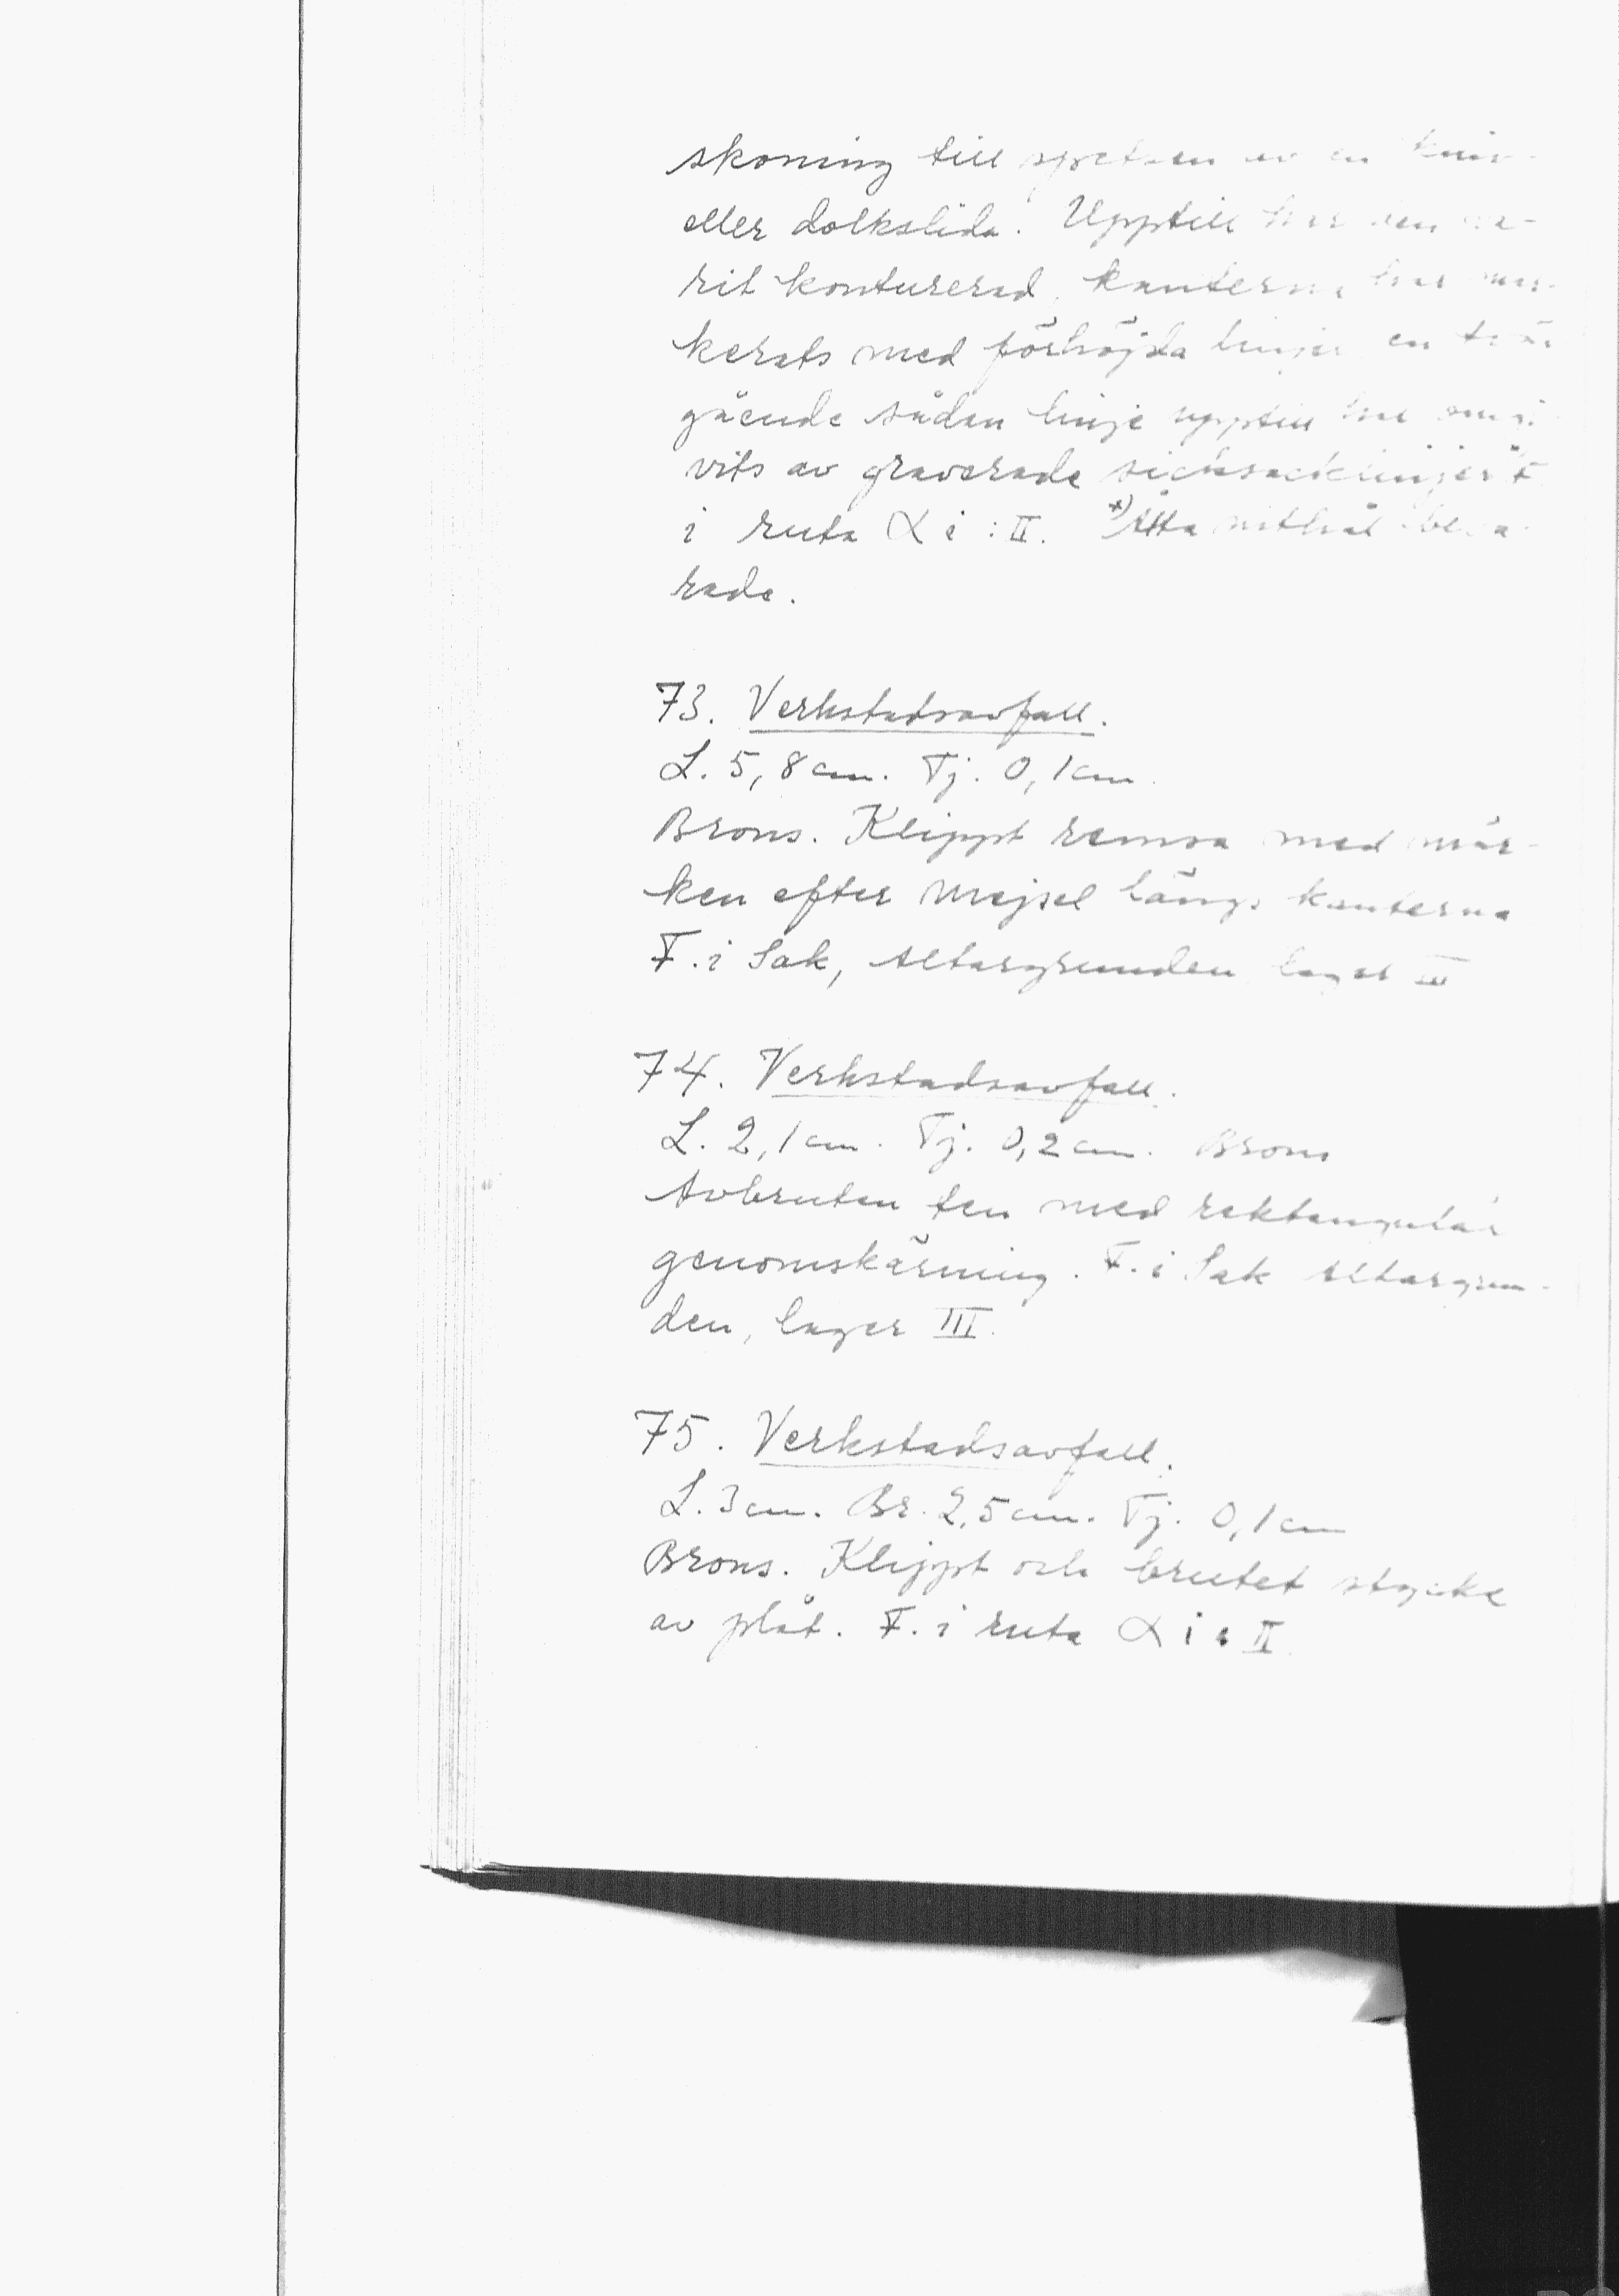 skoning till spetsen av en kniv-
eller dolkslida. Upptill har den va-
rit konturerad. Kanterna har mar-
kerats med förhöjda linjer en tvär
gående sådan linje upptill har omgi-
vits av graverade sicksacklinjer *) F
i ruta α i : II. *) Åtta nithål beva-
rade.
73. Verkstadsavfall.
L. 5,8 cm. Tj. 0,1 cm.
Brons. Klippt remsa med mär-
ken efter mejsel längs kanterna
F. i Sak, Altargrunden lager III
74. Verkstadsavfall.
L. 2,1 cm. Tj. 0,2 cm. Brons
Avbruten ten med rektangulär
genomskärning. F. i Sak Altargrun-
den, lager III.
75. Verkstadsavfall.
L. 3 cm. Br. 2,5 cm. Tj. 0,1 cm
Brons. Klippt och brutet stycke
av plåt. F. i ruta α i : II.